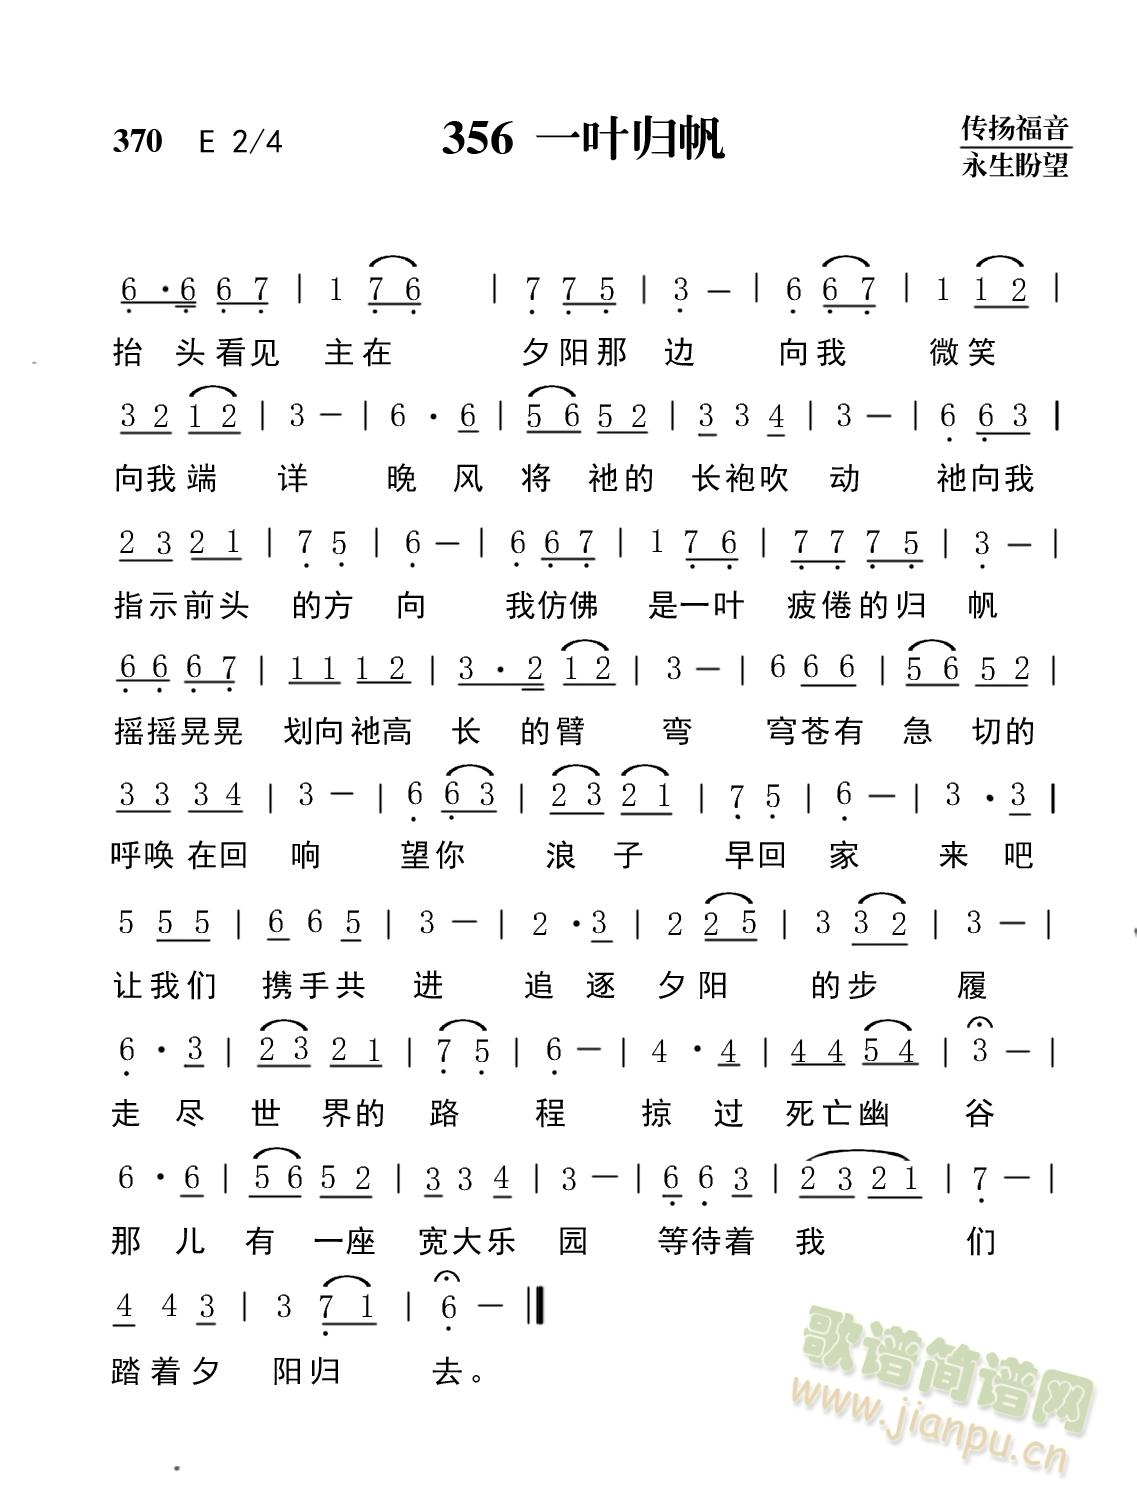 370 E 2/4 356 一叶归帆 传扬福音
永生盼望
6 · 6 6 7 | 1 7 6 | 7 7 5 | 3 — | 6 6 7 | 1 1 2 |
抬 头看见 主在 夕阳那 边 向我 微笑
3 2 1 2 | 3 — | 6 · 6 | 5 6 5 2 | 3 3 4 | 3 — | 6 6 3 |
向我端 详 晚 风 将 祂的 长袍吹 动 祂向我
2 3 2 1 | 7 5 | 6 — | 6 6 7 | 1 7 6 | 7 7 7 5 | 3 — |
指示前头 的方 向 我仿佛 是一叶 疲倦的归 帆
6 6 6 7 | 1 1 1 2 | 3 · 2 1 2 | 3 — | 6 6 6 | 5 6 5 2 |
摇摇晃晃 划向祂高 长 的臂 弯 穹苍有 急 切的
3 3 3 4 | 3 — | 6 6 3 | 2 3 2 1 | 7 5 | 6 — | 3 · 3 |
呼唤在回 响 望你 浪 子 早回 家 来 吧
5 5 5 | 6 6 5 | 3 — | 2 · 3 | 2 2 5 | 3 3 2 | 3 — |
让我们 携手共 进 追 逐 夕阳 的步 履
6 · 3 | 2 3 2 1 | 7 5 | 6 — | 4 · 4 | 4 4 5 4 | 3 — |
走 尽 世 界的 路 程 掠 过 死亡幽 谷
6 · 6 | 5 6 5 2 | 3 3 4 | 3 — | 6 6 3 | 2 3 2 1 | 7 — |
那 儿 有 一座 宽大乐 园 等待着 我 们
4 4 3 | 3 7 1 | 6 — ‖
踏着夕 阳归 去。
歌谱简谱网
www.jianpu.cn